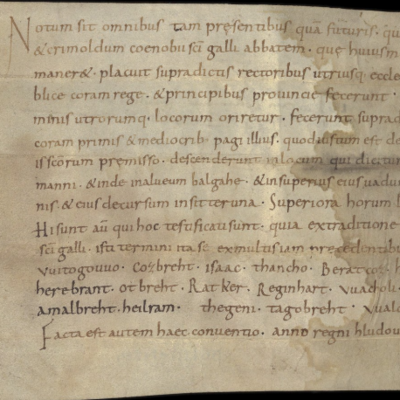 Notum sit omnibus tam pręsentibus quā futuris. qu
& crimoldum coenobii sc̄i galli abbatem. que huiusm
maner&. placuit supradictis rectoribus utriusq; eccle
blice coram rege. & principibus provincie fecerunt
minis utrorumq. locorum oriretur. fecerunt suprad
coram primis & mediocrib; pagi illius. quod iustum est de
is sc̄orum premisso. descenderunt in locum qui dicitur
manni. & inde in alveum balgahe. & insuperius eius vadu
nis. & eius decursum insitteruna. Superiora horum l
Hi sunt aū qui hoc testificati sunt. quia ex traditione
sc̄i galli. isti termini ita sc̄ ex multis iam precedentib;
Vuitogouuo. Cozbreht. isaac. thancho. Beratcoz. h
herebrant. otbreht. Ratker. Reginhart. Vuacholi
amalbreht. heilram. thegeni. tagobreht. Vuald
Facta est autem haec conventio. anno regni hludou